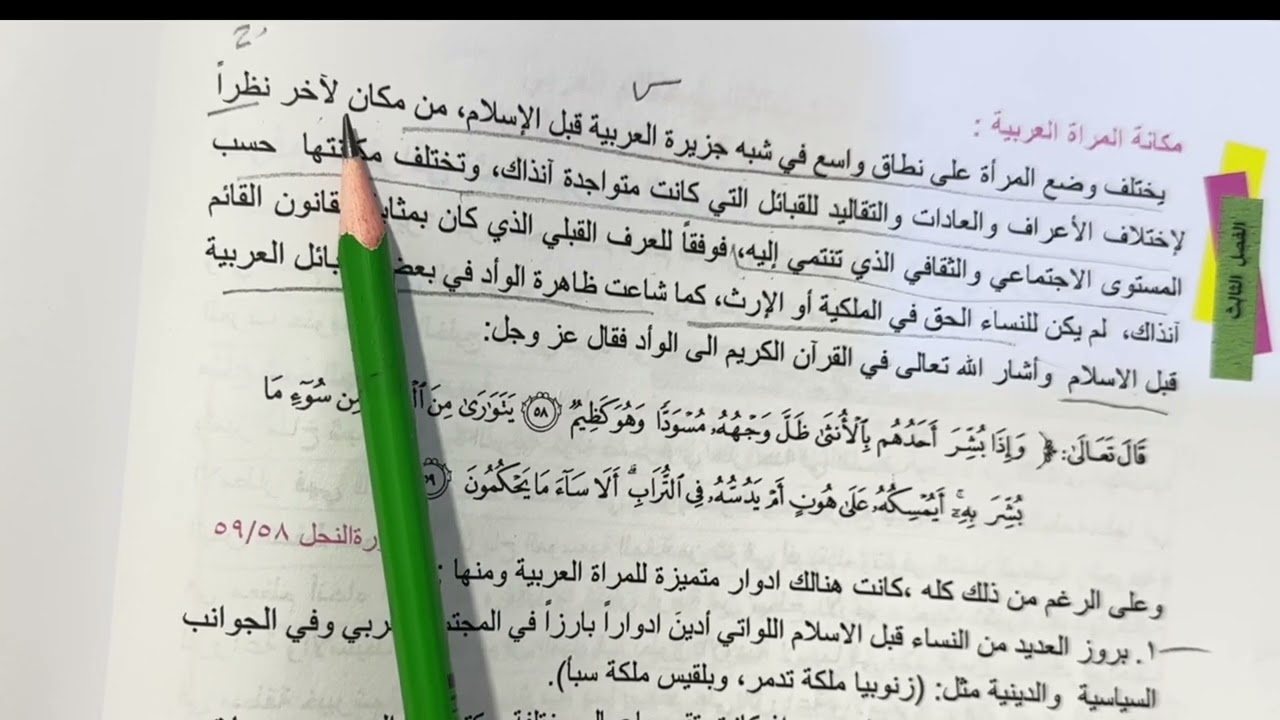 مكانة المراة العربية :
يختلف وضع المرأة على نطاق واسع في شبه جزيرة العربية قبل الإسلام، من مكان لآخر نظراً
لإختلاف الأعراف والعادات والتقاليد للقبائل التي كانت متواجدة آنذاك، وتختلف مكانتها حسب
المستوى الاجتماعي والثقافي الذي تنتمي إليه، فوفقاً للعرف القبلي الذي كان بمثابة القانون القائم
آنذاك، لم يكن للنساء الحق في الملكية أو الإرث، كما شاعت ظاهرة الوأد في بعض القبائل العربية
قبل الاسلام وأشار الله تعالى في القرآن الكريم الى الوأد فقال عز وجل:
قَالَ تَعَالَىٰ: ﴿ وَإِذَا بُشِّرَ أَحَدُهُم بِٱلْأُنثَىٰ ظَلَّ وَجْهُهُۥ مُسْوَدًّا وَهُوَ كَظِيمٌ ٥٨ يَتَوَٰرَىٰ مِنَ مِن سُوٓءِ مَا
بُشِّرَ بِهِۦٓ ۚ أَيُمْسِكُهُۥ عَلَىٰ هُونٍ أَمْ يَدُسُّهُۥ فِى ٱلتُّرَابِ ۗ أَلَا سَآءَ مَا يَحْكُمُونَ ٥٩
سورة النحل ٥٩/٥٨
وعلى الرغم من ذلك كله ،كانت هنالك ادوار متميزة للمراة العربية ومنها :
١. بروز العديد من النساء قبل الاسلام اللواتي أدين ادواراً بارزاً في المجتمع العربي وفي الجوانب
السياسية والدينية مثل: (زنوبيا ملكة تدمر، وبلقيس ملكة سبأ).
الفصل الثالث